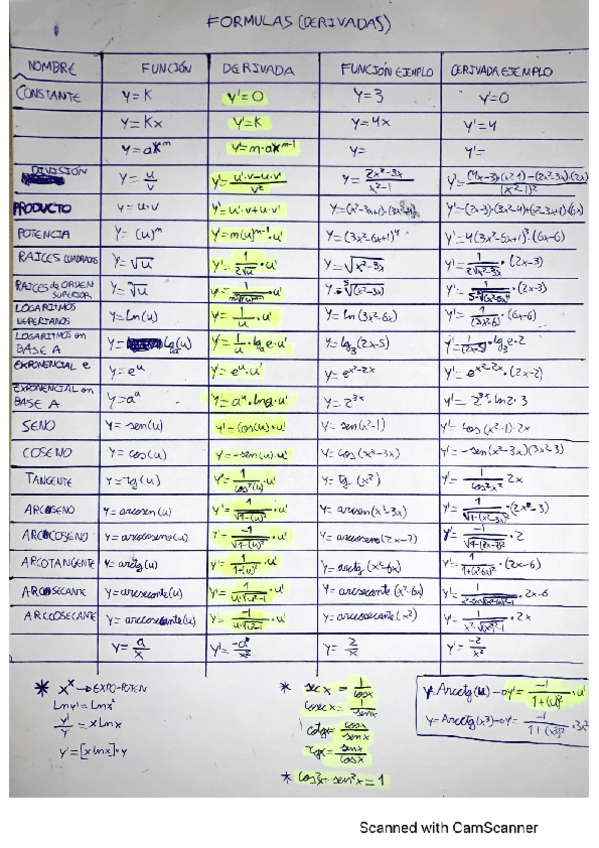 FORMULAS (DERIVADAS)
NOMBRE FUNCIÓN DERIVADA FUNCIÓN EJEMPLO DERIVADA EJEMPLO
CONSTANTE y=K y'=0 y=3 y'=0
y=Kx y'=K y=4x y'=4
y=ax^m y'=m·ax^m-1 y= y'=
DIVISIÓN y=u/v y'=u'·v-u·v'/v² y=2x²-3x/x²-1 y'=(4x-3)·(x²-1)-(2x²-3x)·(2x)/(x²-1)²
PRODUCTO y=u·v y'=u'·v+u·v'
POTENCIA y=(u)^m y'=m(u)^m-1·u' y=(3x²-6x+1)⁴ y'=4(3x²-6x+1)³·(6x-6)
RAICES CUADRADAS y=√u y'=1/2√u·u' y=√x²-3x y'=1/2√x²-3x·(2x-3)
RAICES de ORDEN SUPERIOR ·(2x-3)
LOGARITMOS NEPERIANOS y=Ln(u) y'=1/u·u' y=ln(3x²-6x) y'=1/(3x²-6x)·(6x-6)
LOGARITMOS en BASE A y=Lga(u) y'=1/u·lga e·u' y=lg3(2x-5) y'=1/(2x-5)·lg3 e·2
EXPONENCIAL e y=e^u y'=e^u·u' y=e^x²-2x y'=e^x²-2x·(2x-2)
EXPONENCIAL en BASE A y=a^u y'=a^u·lna·u' y=2^3x y'=2^3x·ln2·3
SENO y=sen(u) y'=cos(u)·u' y=sen(x²-1) y'=cos(x²-1)·2x
COSENO y=cos(u) y'=-sen(u)·u' y=cos(x³-3x) y'=-sen(x²-3x)(3x²-3)
TANGENTE y=tg(u) y'=1/cos²(u)·u' y=tg(x²) y'=1/cos²x² 2x
ARCOSENO y=arcosen(u) y'=1/√1-(u)²·u' y'=1/√1-(x²-3x)²·(2x-3)
ARCOCOSENO y'=-1/√1-(u)²·u' y'=-1/√1-(2x-7)²·2
ARCOTANGENTE y=arctg(u) y'=1/1+(u)²·u' y=arctg(x²-6x) y'=1/1+(x²-6x)²·(2x-6)
ARCOSECANTE y=arcsecante(u) y=arcsecante(x²-6x) 2x-6
ARCCOSECANTE y=arccosecante(u) y=arccosecante(x²) ·2x
y=a/x y'=-a/x² y=2/x y'=-2/x²
* x^x → EXPO-POTEN
Lny'=Lnx^x
y'/y=xLnx
y'=[xlnx]·y
* sec x = 1/cosx
cosec x = 1/senx
cotgx = cosx/senx
tgx = senx/cosx
* cos²x·sen²x=1
y=Arcctg(u)→y'=-1/1+(u)²·u'
y=Arcctg(x³)→y'=-1/1+(x³)²·3x²
Scanned with CamScanner